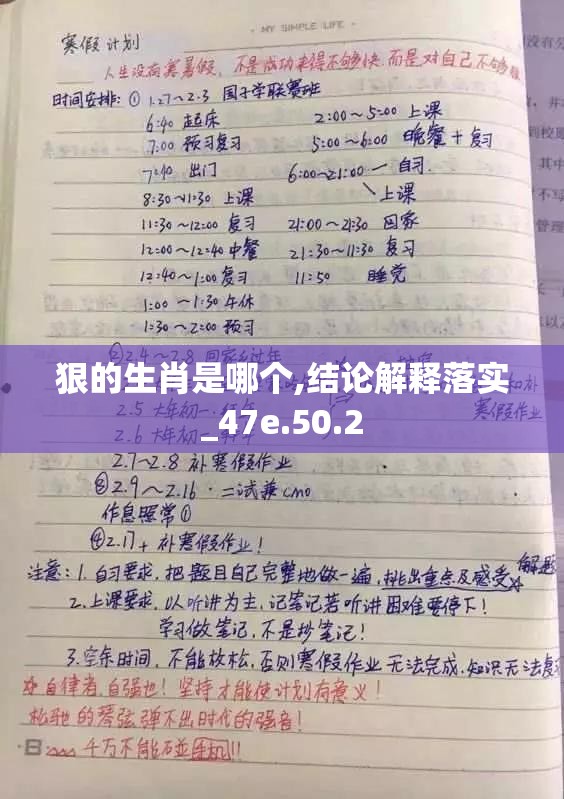 MY SIMPLE LIFE
寒假计划
人生没有寒暑假，不是成功来得不够快，而是对自己不够狠
时间安排：① 1.27～2.3 国子学联赛班
6:40 起床
7:00 预习复习
7:40 出门
8:30～11:30 上课
11:30～12:00 复习
12:00～12:40 中餐
12:40～1:00 复习
1:00～1:30 午休
1:30～2:00 预习
2:00～5:00 上课
5:00～6:00 晚餐+复习
6:00～21:00 自习
上课
21:00～21:30 回家
21:30～11:30 复习
11:50 睡觉
②2.4～2.8 回家乡过年
狠的生肖是哪个,结论解释落实
_47e.50.2
2.5 大年初一
寒假作业
2.6 大年初二
2.7～2.8 补寒假作业
③2.9～2.16 · 二试兼cmo
作息照常①
④2.17+ 补寒假作业！
注意：1. 自习要求，把题目自己完整地做一遍，挑出重点及感受
解题
2. 上课要求，以听讲为主，记笔记若听讲困难要停下！
学习做笔记，不是抄笔记！
3. 空余时间，不能放松，否则寒假作业无法完成，知识无法复
自律者，自强也！坚持才能使计划有意义！
松驰的琴弦弹不出时代的强音！
千万不能碰手机!!